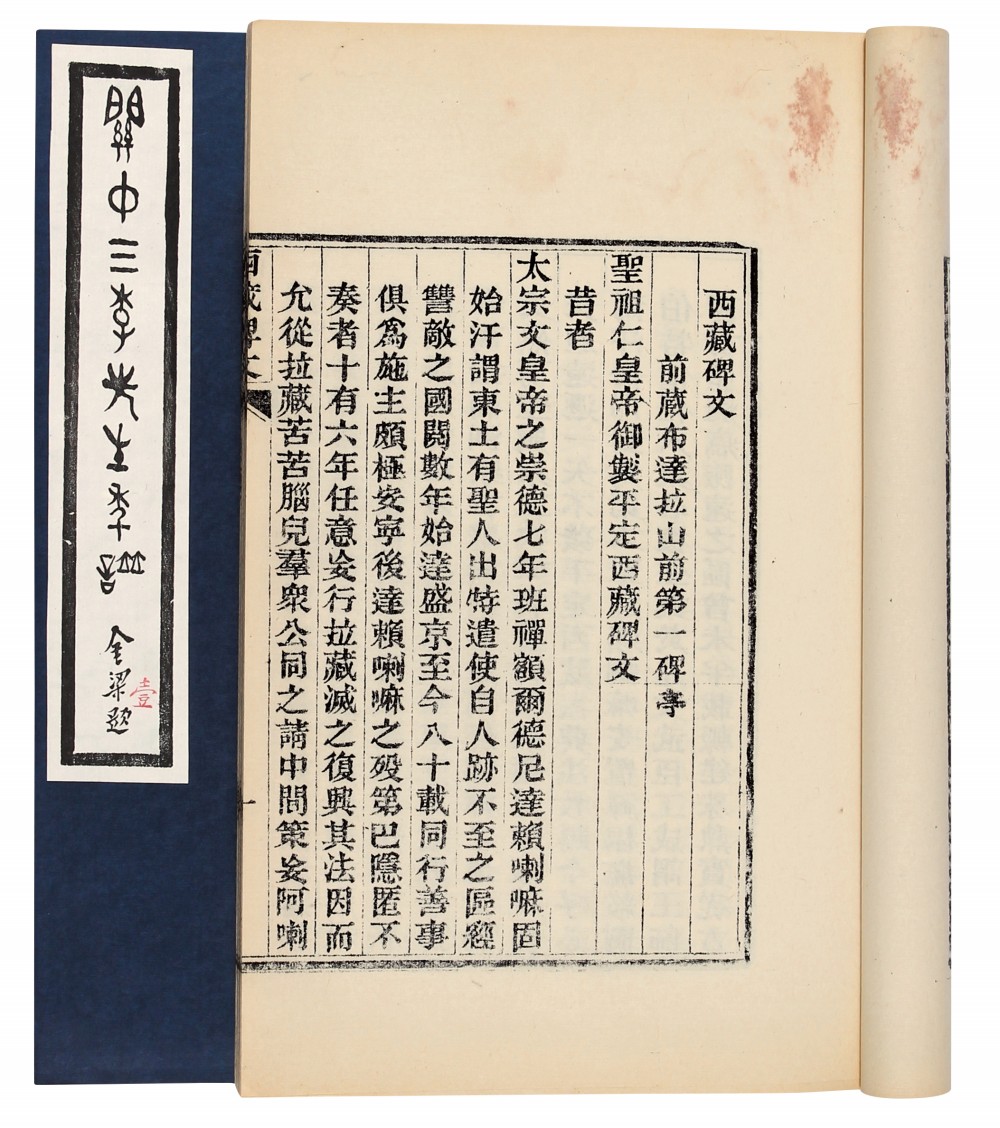 西藏碑文
前藏布達拉山前第一碑亭
聖祖仁皇帝御製平定西藏碑文
昔者
太宗文皇帝之崇德七年班禪額爾德尼達賴喇嘛固
始汗謂東土有聖人出特遣使自人跡不至之區經
讐敵之國閱數年始達盛京至今八十載同行善事
俱爲施主頗極安寧後達賴喇嘛之歿第巴隱匿不
奏者十有六年任意妄行拉藏滅之復興其法因而
允從拉藏苦苦腦兒羣衆公同之請中間策妄阿喇
西藏碑文
關中三李先生年譜
金梁題
壹